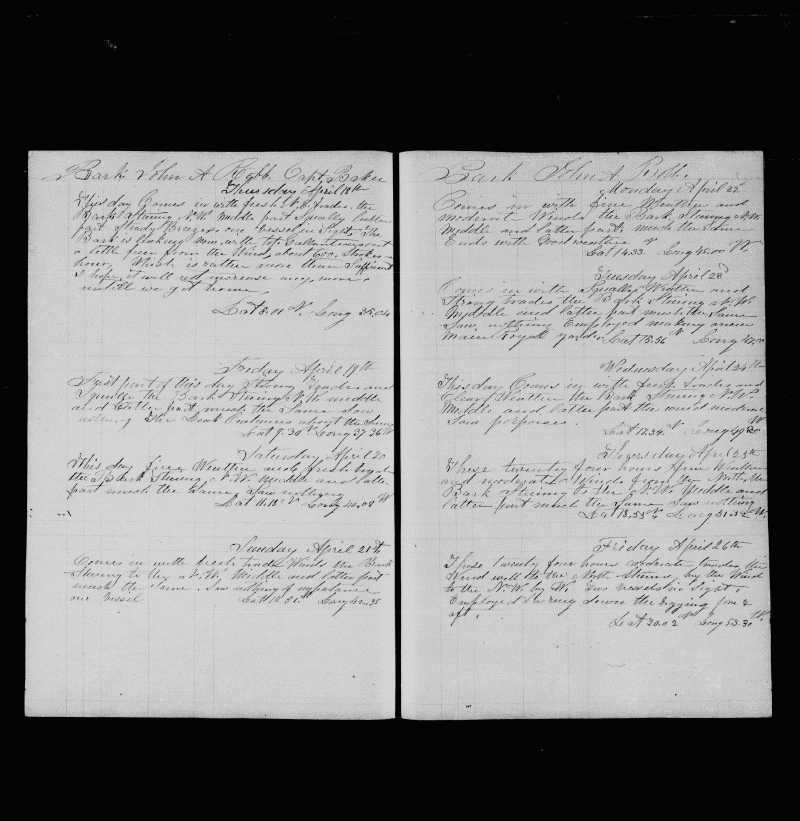 Bark John A Robb. Capt. Baker
Thursday April 18th
This day Comes in with fresh N.E. trades. the
Bark Stearing N.W. Middle part Squally latter
part Steady Brazes one vessel in Sight. The
Bark is leaking now with top Gallent
a little freer from the Wind about 600 Strokes
hour, Which is rather more than Sufficient
I hope it will not increase any more
untill we get home
Lat 8.01 N. Long 35.04
Friday April 19th
First part of this day Strong Trades and
Squalls the Bark Stearing N.W. middle
and latter part much the Same Saw
nothing The Leak Continues about the Same
Lat 9.30 N Long 37.36 W
Saturday April 20
This day fine Weather and fresh
the Bark Stearing N.W. Middle and latter
part much the Same Saw nothing
Lat 11.18 N Long 40.08 W
Sunday April 21th
Comes in with fresh trade Winds the Bark
Stearing to the N.W. Middle and latter part
much the Same. Saw nothing
one vessel Lat 12.51 N Long 42.35
Bark John A Robb.
Monday April 22
Comes in with fine Weather and
moderate Winds the Bark Stearing N.W.
Middle and latter part much the Same
Ends with Good weather
Lat 14.33 N Long 45.00 W
Tuesday April 23d
Comes in with Squally Weather and
Strong trades the Bark Stearing N.W.
Middle and latter part much the Same
Saw nothing Employed making a new
Main Royall yard Lat 15.56 N Long 47.00
Wednesday April 24th
This day Comes in with fresh trades and
Clear Weather the Bark Stearing N.W.
Middle and latter part the wind moderate
Saw porposes.
Lat 17.34 N Long 49.20 W
Thursday April 25th
These twenty four hours fine Weather
and moderate Winds from the North, the
Bark Stearing to the N.W. Middle and
latter part much the Same Saw nothing
Lat 18.55 N Long 51.32 W.
Friday April 26th
These twenty four hours moderate trades the
Wind well to the North Stearns by the Wind
to the N.W. by W. Two vessels in Sight.
Employed taring down the rigging fore &
aft.
Lat 20.02 N Long 53.30 W.